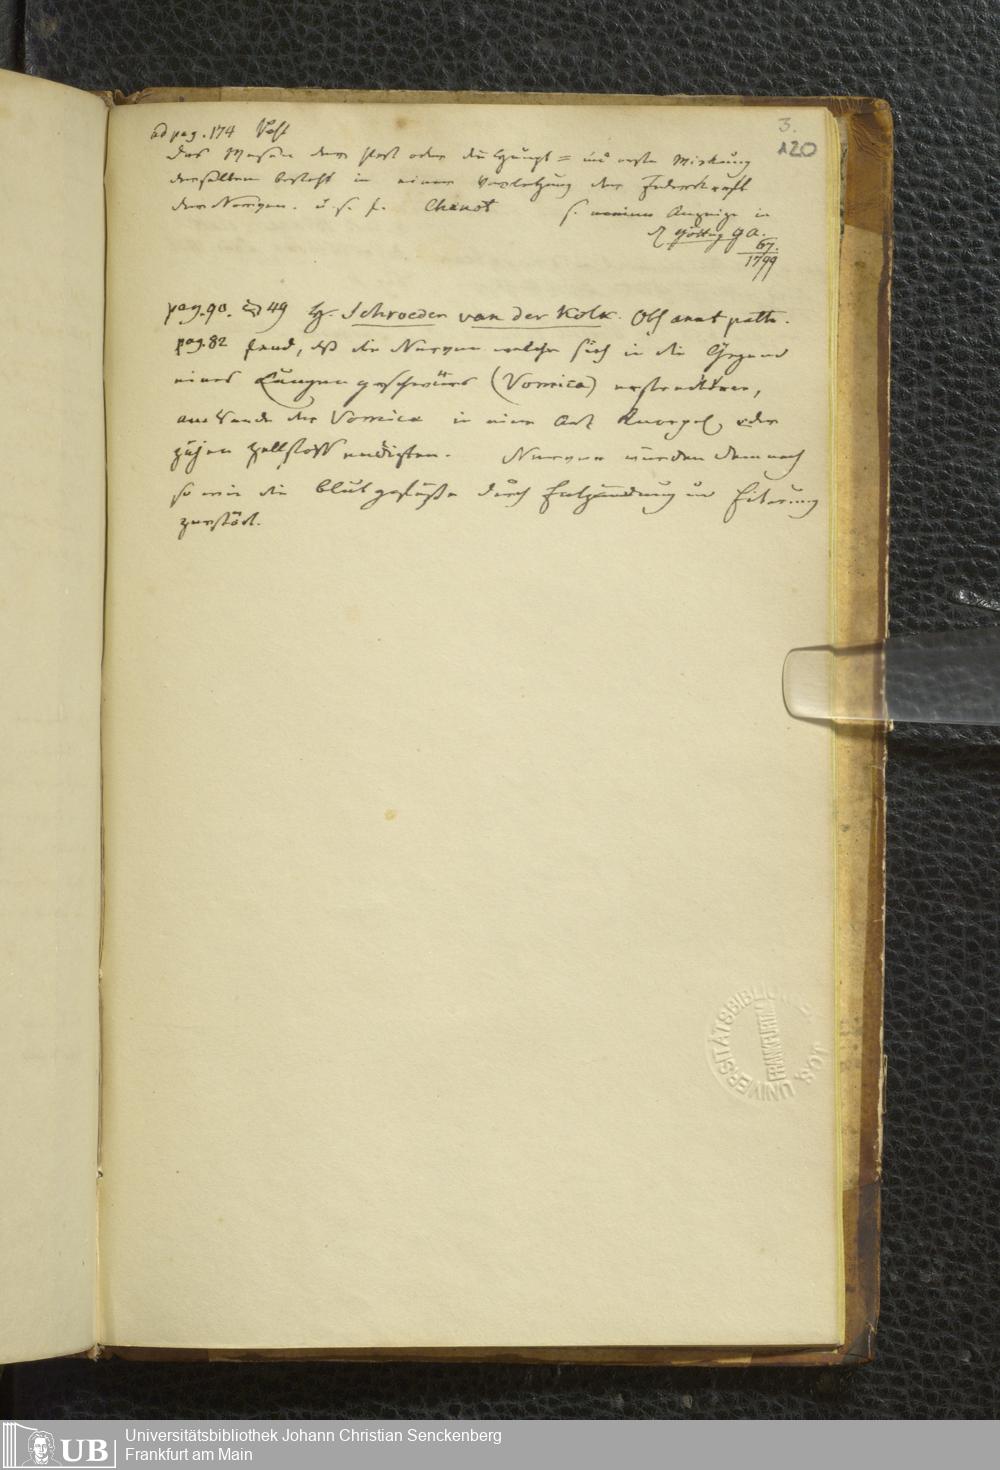 3.
120
ad pag. 174 Pest
Das Wesen der Pest oder die Haupt = und erste Wirkung
derselben besteht in einer Verletzung der Federkraft
der Nerven. u. s. f. Chenot s. meine Anzeige in
d Götting g A.
67.
1799
pag. 90. 49 H. Schroeder van der Kolk. Obs anat path.
pag. 82 fand, daß die Nerven welche sich in die Gegend
eines Lungengeschwürs (Vomica) erstreckten,
am Rande der Vomica in eine Art Knorpel, oder
zähen Zellstoff endigten. Nerven würden demnach
so wie die Blutgefäße durch Entzündung und Eiterung
zerstört.
UNIVERSITÄTSBIBLIOTHEK
FRANKFURT
UB
Universitätsbibliothek Johann Christian Senckenberg
Frankfurt am Main